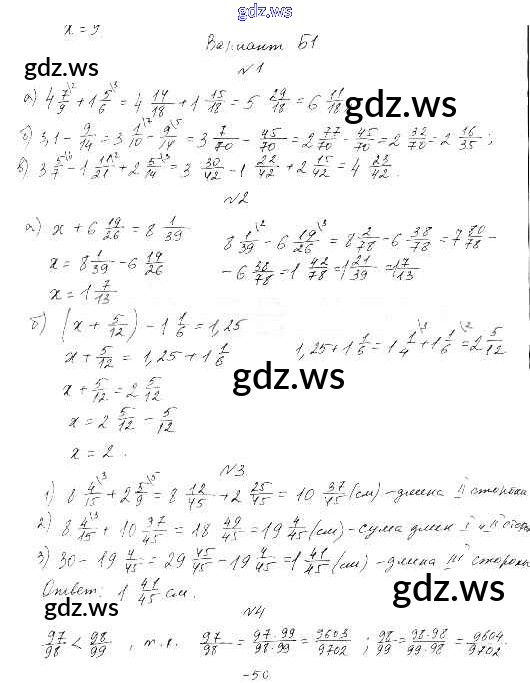 gdz.ws
x = y
Вариант Б1
gdz.ws
gdz.ws
№1
а) 4 7/9 \2 + 1 5/6 \3 = 4 14/18 + 1 15/18 = 5 29/18 = 6 11/18
б) 3,1 - 9/14 = 3 1/10 \7 - 9/14 \5 = 3 7/70 - 45/70 = 2 77/70 - 45/70 = 2 32/70 = 2 16/35 ;
в) 3 5/7 \6 - 1 11/21 \2 + 2 5/14 \3 = 3 30/42 - 1 22/42 + 2 15/42 = 4 23/42 .
gdz.ws
gdz.ws
№2
а) x + 6 19/26 = 8 1/39
8 1/39 \2 - 6 19/26 \3 = 8 2/78 - 6 38/78 = 7 80/78 -
x = 8 1/39 - 6 19/26
- 6 38/78 = 1 42/78 = 1 21/39 = 1 7/13
x = 1 7/13
б) (x + 5/12) - 1 1/6 = 1,25
x + 5/12 = 1,25 + 1 1/6
1,25 + 1 1/6 = 1 1/4 \3 + 1 1/6 \2 = 2 5/12
gdz.ws
x + 5/12 = 2 5/12
x = 2 5/12 - 5/12
gdz.ws
x = 2 .
№3
1) 8 4/15 \3 + 2 5/9 \5 = 8 12/45 + 2 25/45 = 10 37/45 (см) - длина II стороны
2) 8 4/15 \3 + 10 37/45 = 18 49/45 = 19 4/45 (см) - сума длин I и II стор
3) 30 - 19 4/45 = 29 45/45 - 19 4/45 = 1 41/45 (см) - длина III стороны
Ответ: 1 41/45 см.
gdz.ws
gdz.ws
№4
97/98 < 98/99 , т.к. 97/98 = 97·99/98·99 = 9603/9702 ; 98/99 = 98·98/99·98 = 9604/9702 .
-50